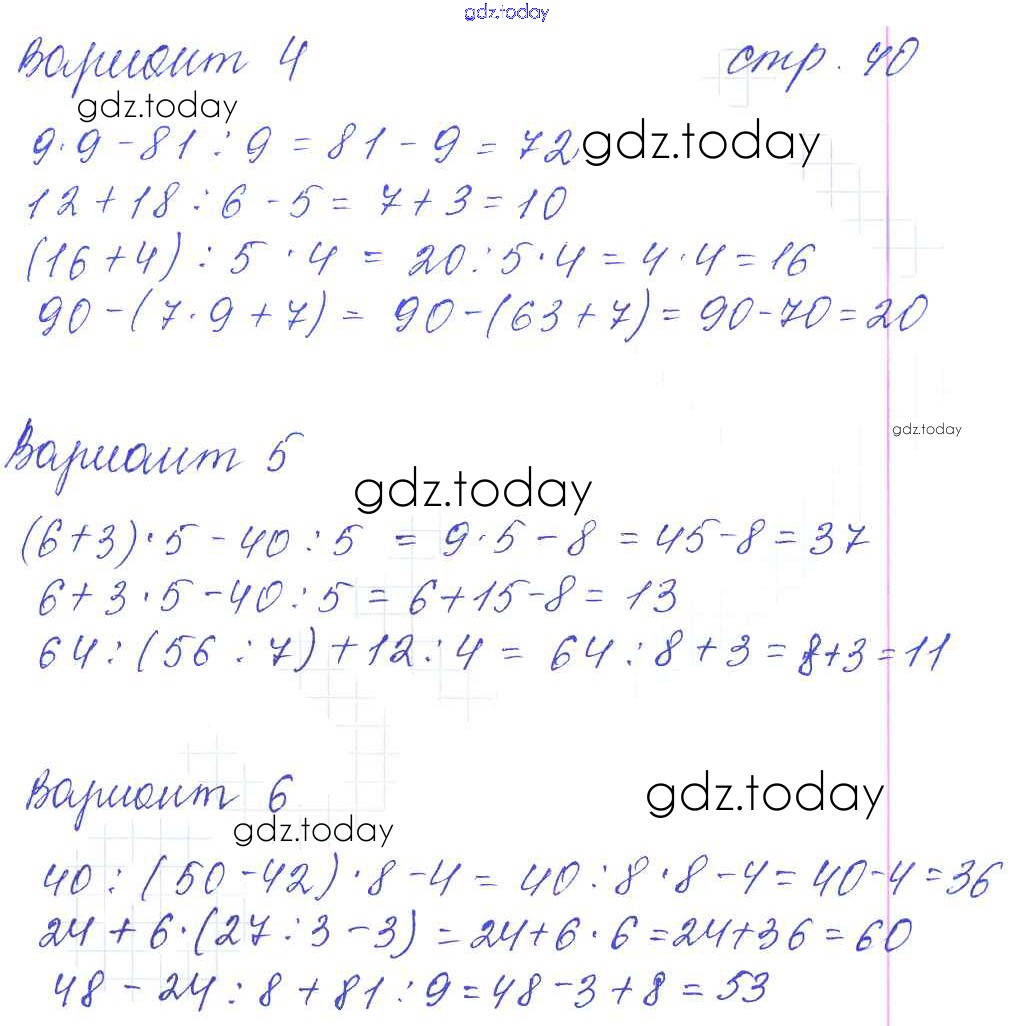 gdz.today
Вариант 4 стр. 40
gdz.today
9·9-81:9=81-9=72 gdz.today
12+18:6-5=7+3=10
(16+4):5·4=20:5·4=4·4=16
90-(7·9+7)=90-(63+7)=90-70=20
gdz.today
Вариант 5
gdz.today
(6+3)·5-40:5=9·5-8=45-8=37
6+3·5-40:5=6+15-8=13
64:(56:7)+12:4=64:8+3=8+3=11
Вариант 6 gdz.today
gdz.today
40:(50-42)·8-4=40:8·8-4=40-4=36
24+6·(27:3-3)=24+6·6=24+36=60
48-24:8+81:9=48-3+8=53